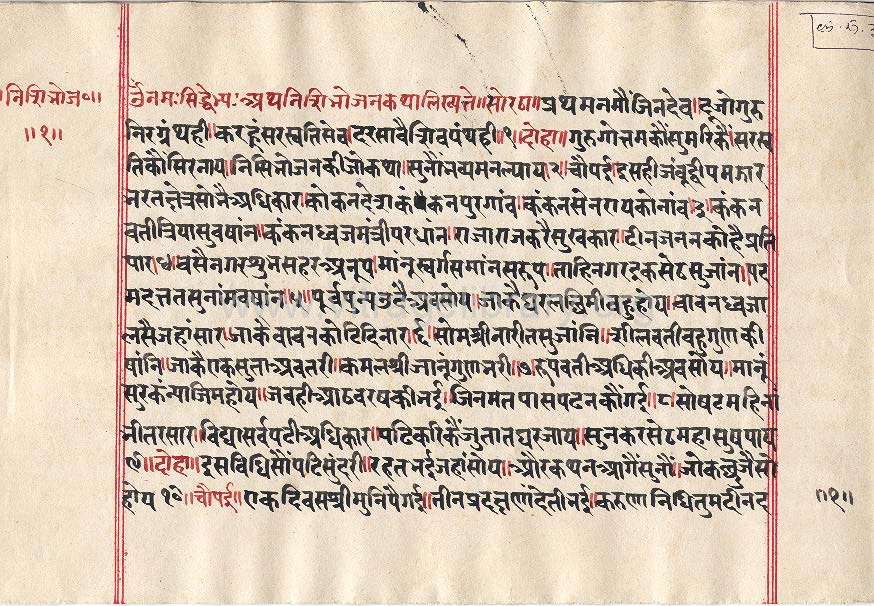 निशिभोज॰॥
॥१॥
ॐनमःसिद्धेभ्यः॥अथनिशिभोजनकथालिख्यते॥सोरठा॥प्रथमनमौंजिनदेव।दूजोगुरु
निरग्रंथही।करहूंसरस्वतिसेव।दरसावैशिवपंथही॥१॥दोहा॥गुरुगोत्तमकौंसुमरिकैं।सरस्व
तिकौंसिरनाय।निसिभोजनकीजोकथा।सुनौंभव्यमनल्याय॥२॥चौपई॥इसहीजंबूद्वीपमझार
भरतक्षेत्रसोभैअधिकार।कोकनदेशकंकनपुरगांव।कंकनसेनरायकोनांव॥३॥कंकन
वतीत्रियासुवषांन।कंकनध्वजमंत्रीपरधांन।राजाराजकरैसुखकार।दीनजननकोहैप्रति
पार॥४॥वसैनगरशुभसहरअनूप।मांनूस्वर्गसमांनसरूप।ताहिनगरइकसेठसुजांन।पद
मदत्ततसुनांमवषांन॥५॥पूर्वपुन्यउदैअवसोय।जाकैघरलक्ष्मीबहुहोय।बावनध्वजा
लसैजहांसार।जाकेबावनकोटिदिनार॥६॥सोमश्रीनारीतसुजांनि।शीलवतीबहुगुणकी
षांनि।जाकैएकसुताअवतरी।कमलश्रीजानूंगुणभरी॥७॥रूपवतीअधिकीअवसोय।मानूं
सुरकंन्याजिमहोय।जबहीआठवरषकीभई।जिनमतपासपठनकौंगई॥८॥सोषटमहिनां
भीतरसार।विद्यासर्वपढीअधिकार।पढिकरिकैंजुतातघरजाय।सुनकरसेठमहासुषपाय
॥९॥दोहा॥इसविधिसौंपढिसुंदरी।रहतभईजहांसोय।औरकथनआगैंसुनौं।जोकछुजैसो
होय॥१०॥चौपई॥एकदिवसश्रीमुनिपैगई।तीनप्रदक्षणांदेतीभई।करुणानिधितुमदीनद
॥१॥